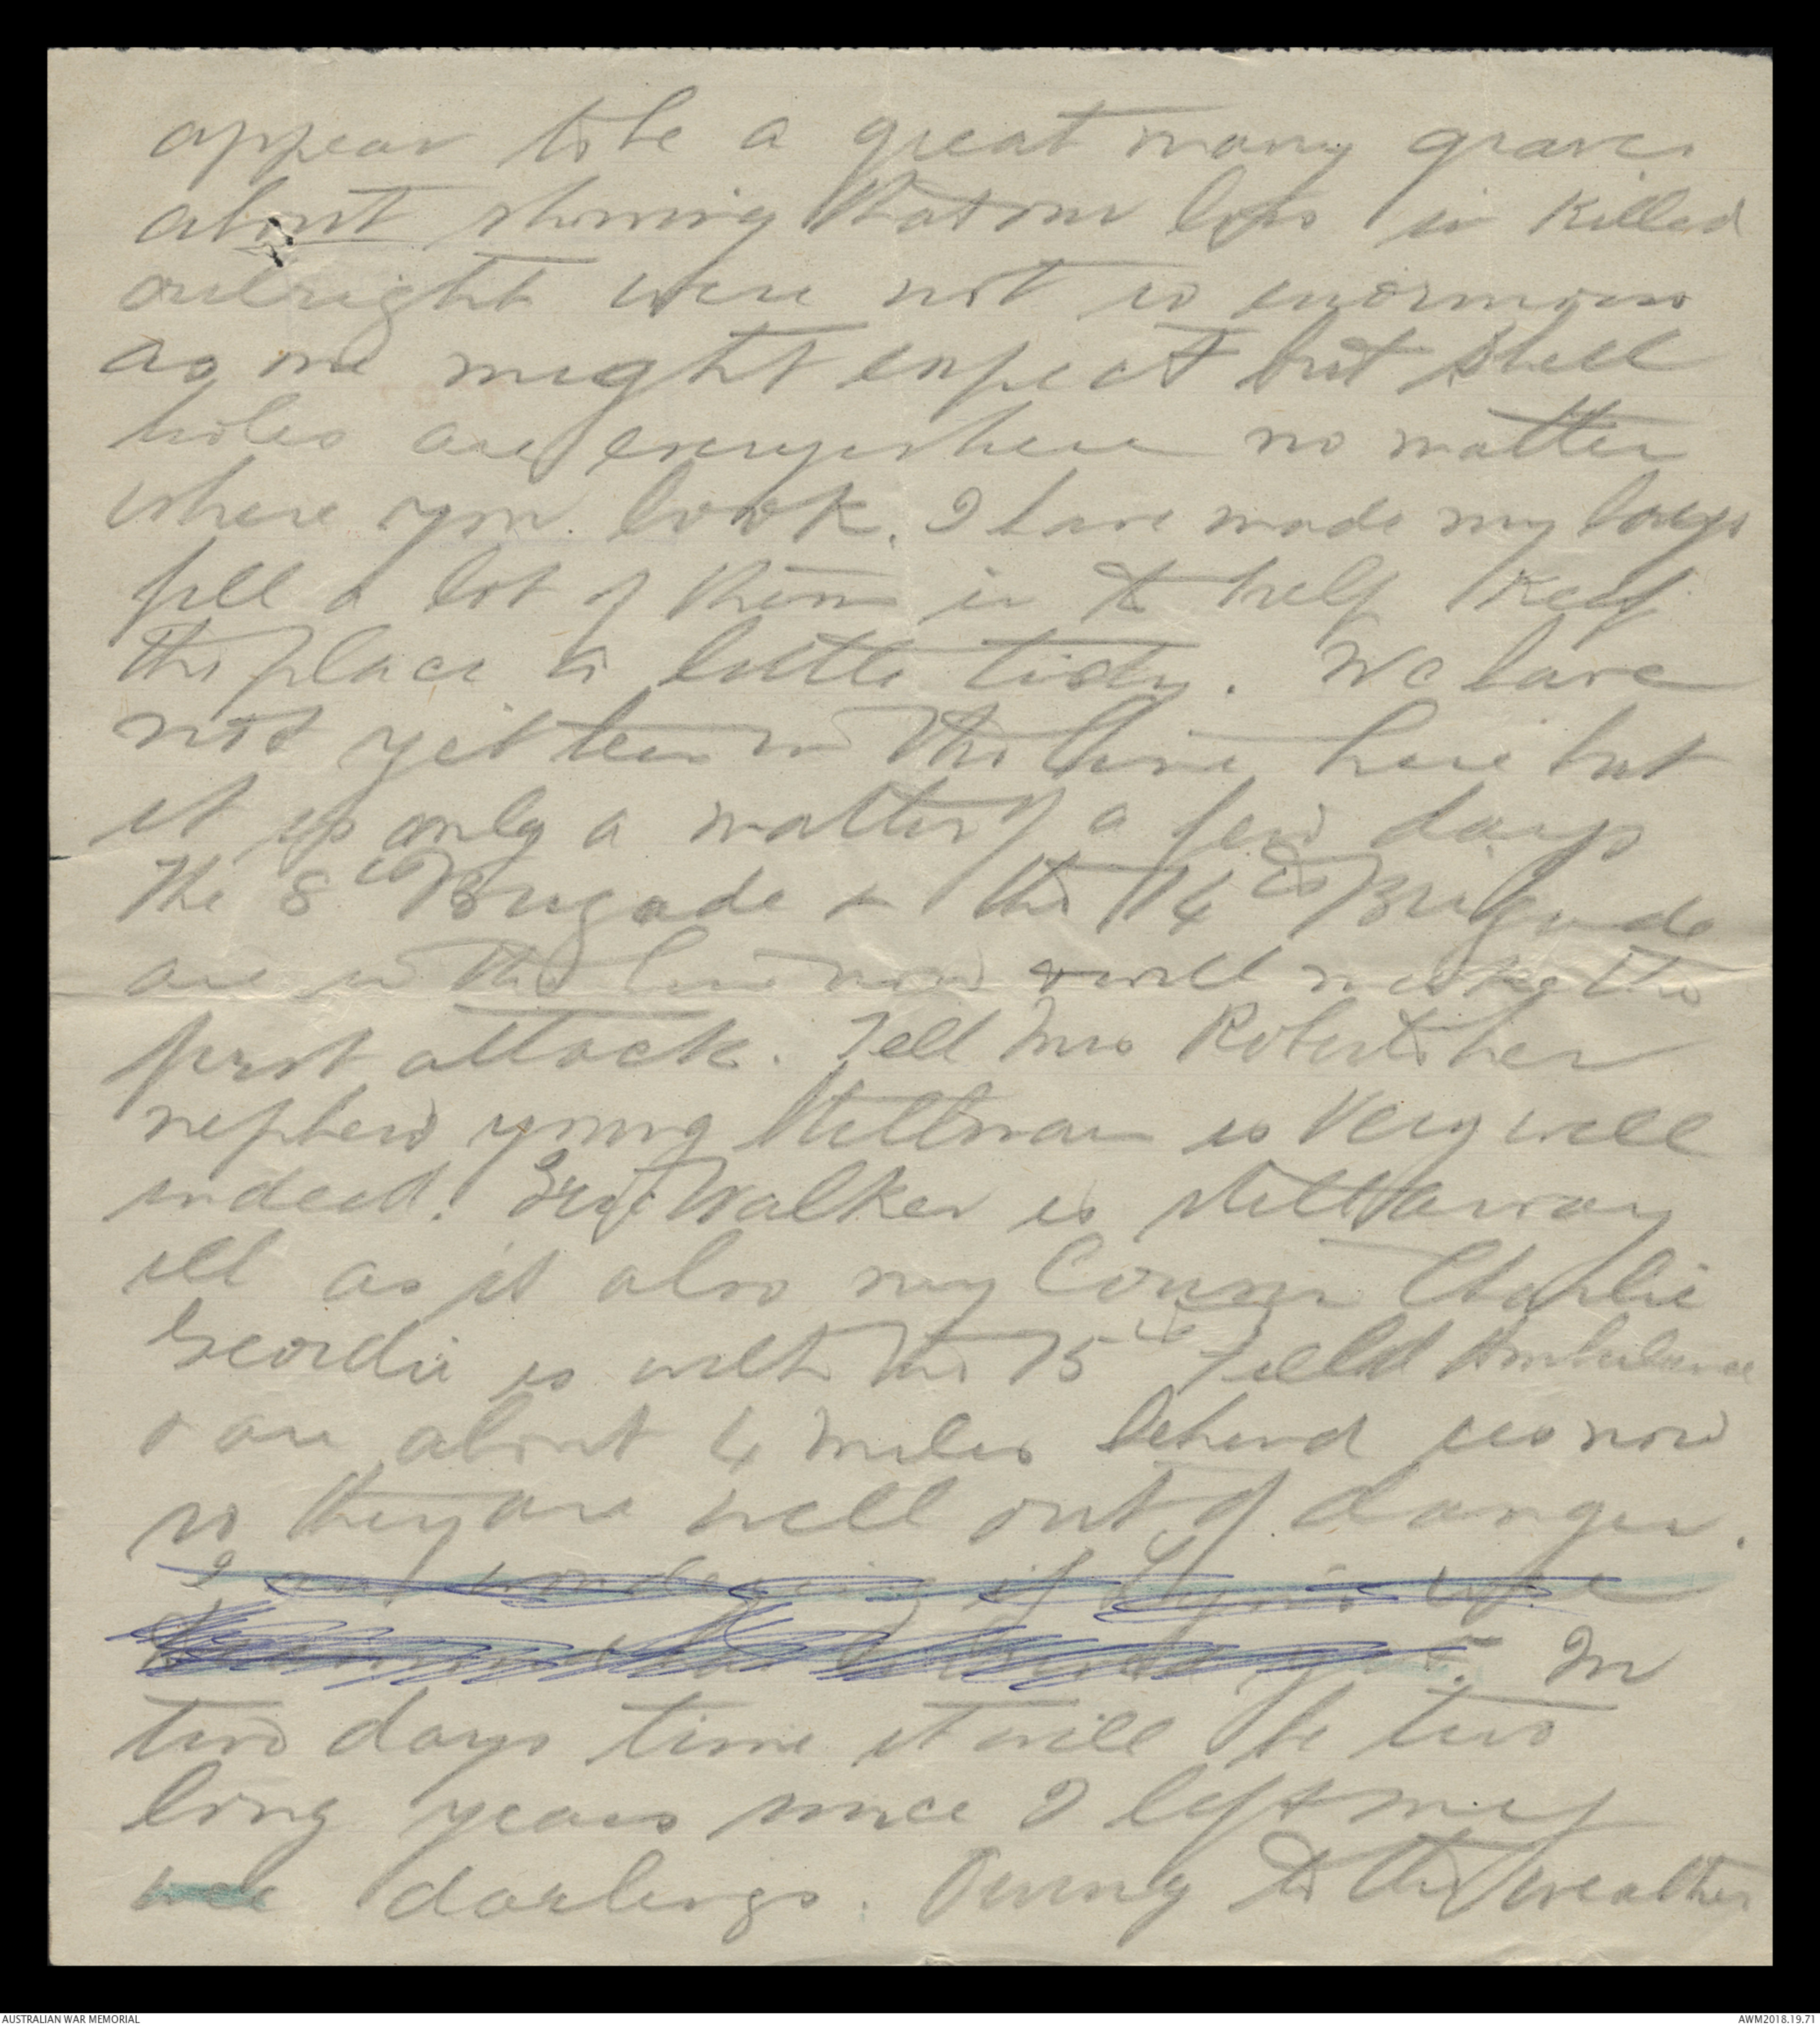 appear to be a great many graves
about showing that our loss in killed
outright were not so enormous
as one might expect but shell
holes are everywhere no matter
where you look. I have made my boys
fill a lot of them in to help keep
the place a little tidy. We have
not yet been in the line here but
it is only a matter of a few days
The 8th Brigade & the 14th Brigade
are in the line now & will make the
first attack. Tell Mrs Roberts her
nephew young Stillman is very well
indeed. Walker is still away
ill as is also my Cousin Charlie
Geordie is with the 15th Field Ambulance
& are about 4 miles behind us now
so they are well out of danger.
I am wondering if
In
two days time it will be two
long years since I left my
wee darlings. Owing to the weather
AUSTRALIAN WAR MEMORIAL
AWM2018.19.71